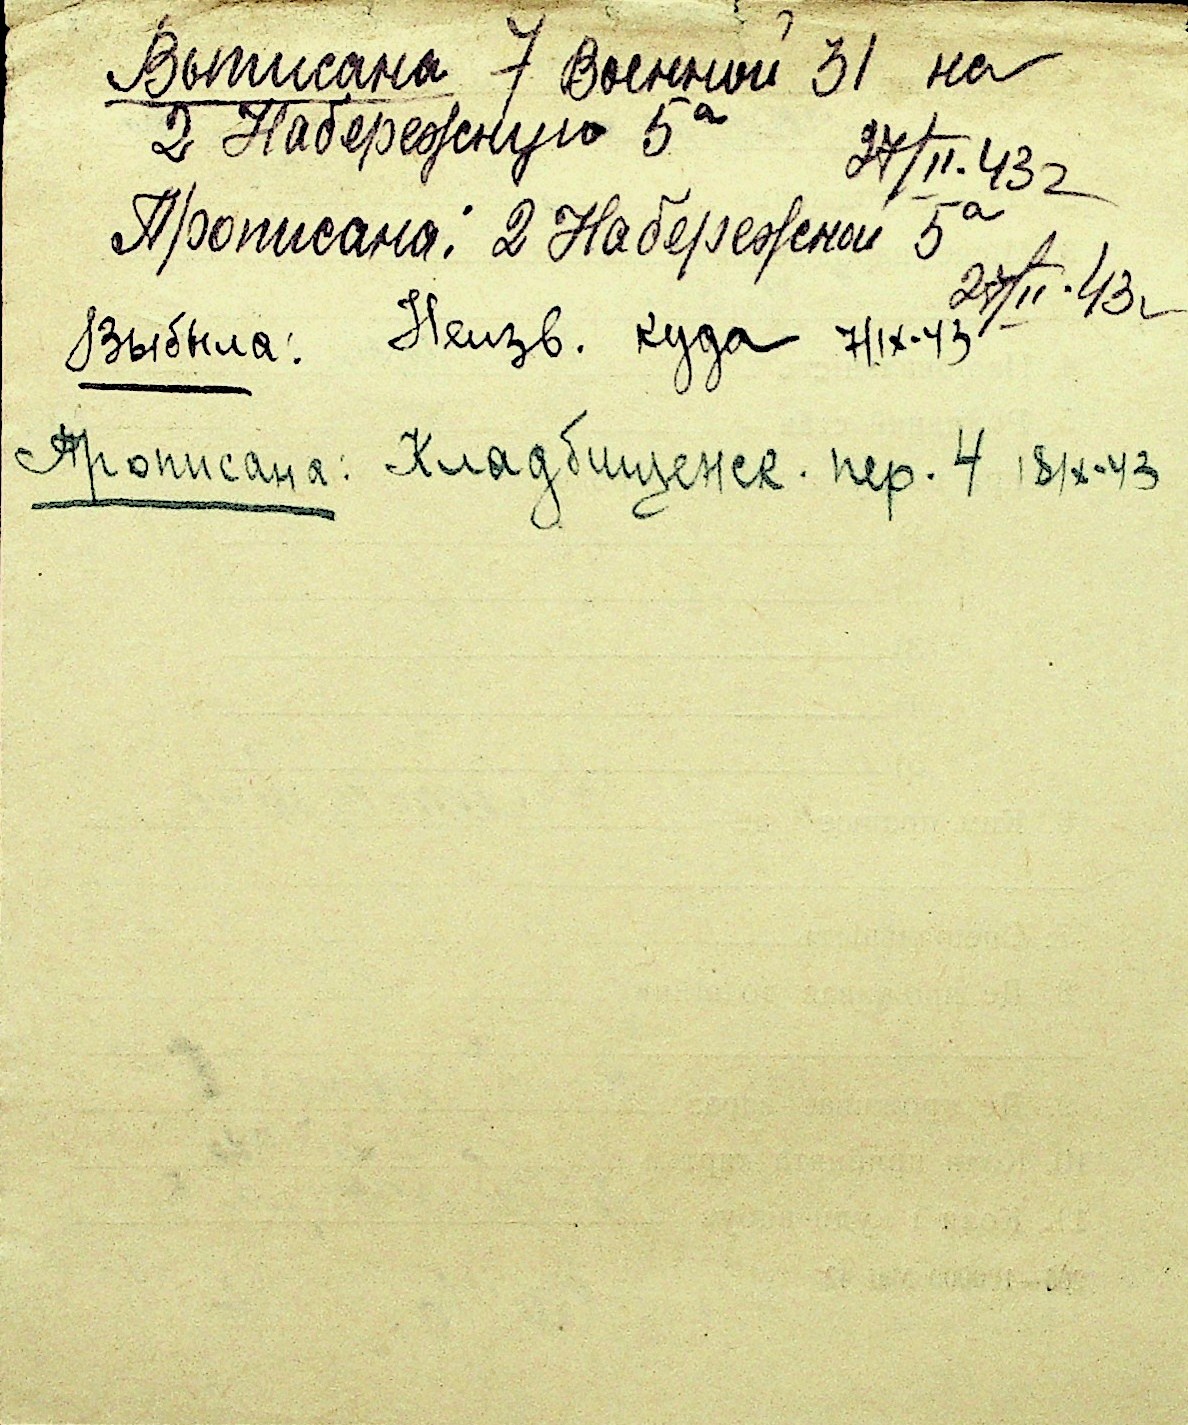 Выписана 7 Военной 31 на
2 Набережную 5а
27/II-43г
Прописана: 2 Набережной 5а
27/II-43г
Выбыла: Неизв. куда 7/IX-43
Прописана: Кладбищенск. пер. 4 18/X-43